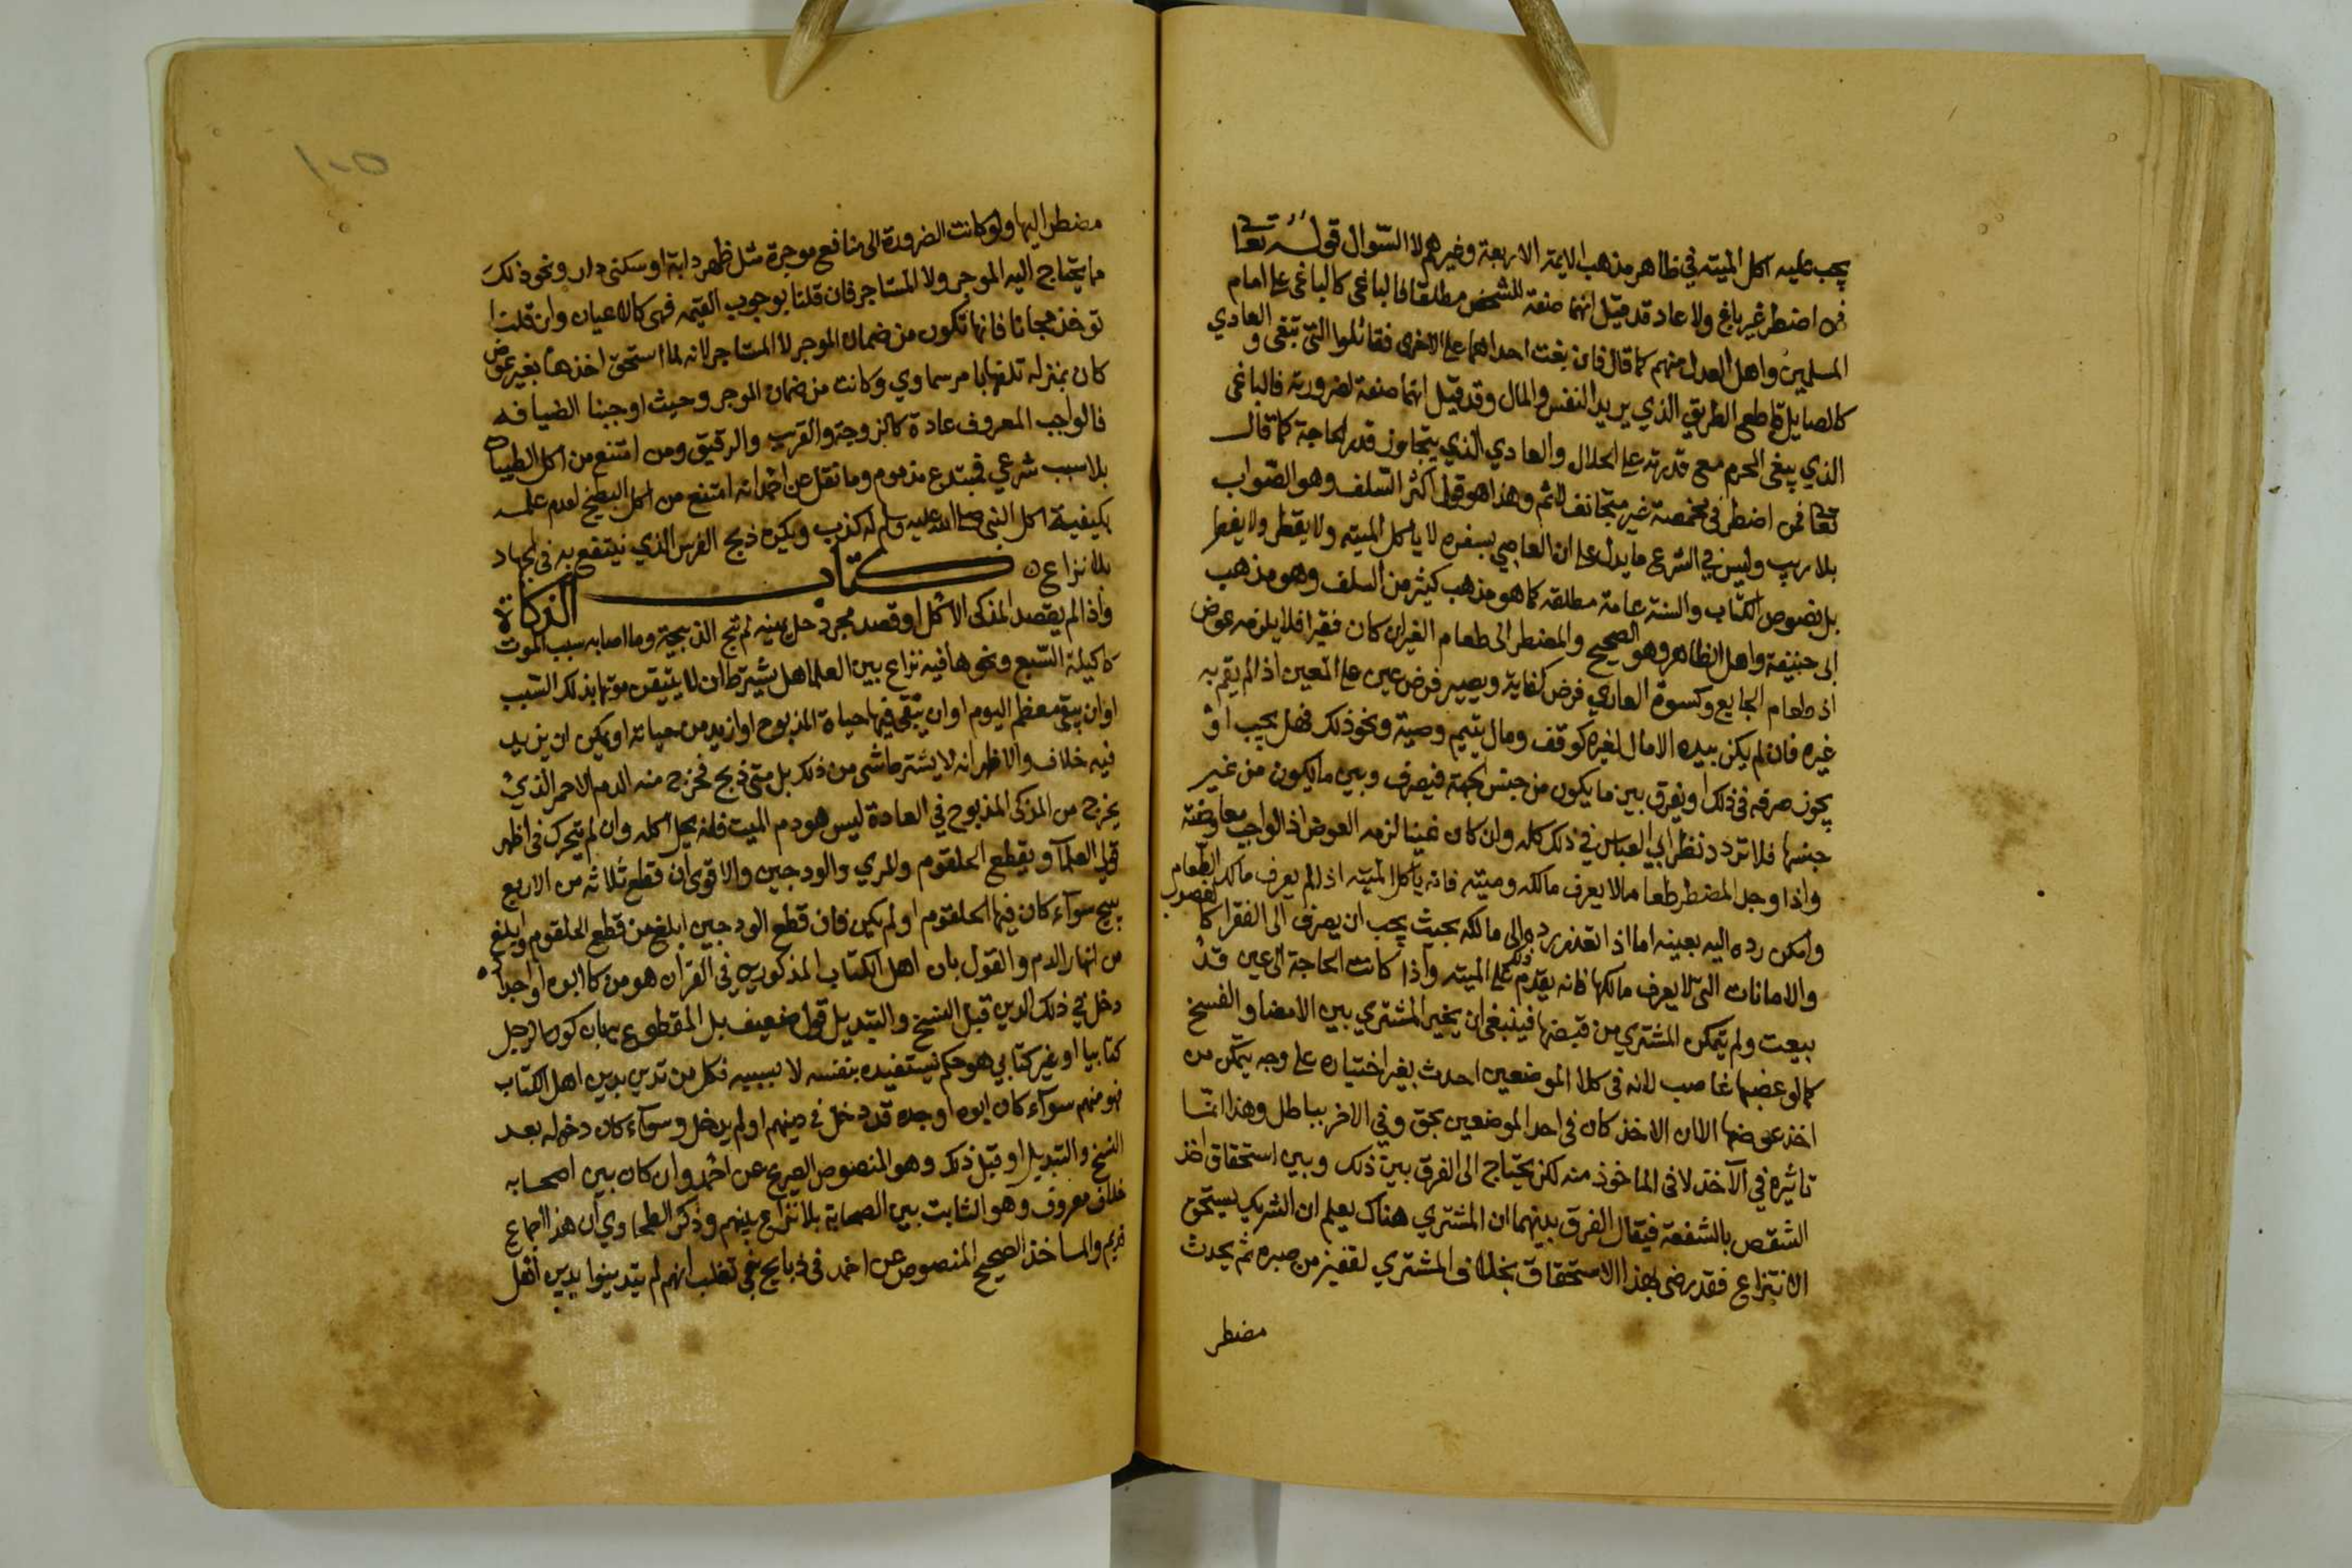 يجب عليه اكل الميته في ظاهر مذهب الايمة الاربعة وغيرهم لا السّوال قوله تعا
فمن اضطر غير باغ ولا عاد قد قيل انهما صفة للشخص مطلقا فالباغي كالباغي على امام
المسلمين واهل العدل منهم كما قال فان بغت احداهما على الاخرى فقاتلوا التي تبغي والعادي
كالصايل قاطع الطريق الذي يريد النفس والمال وقد قيل انهما صفة لضرورته فالباغي
الذي يبغي المحرم مع قدرته على الحلال والعادي الذي يتجاوز قدر الحاجة كما قال
تعا فمن اضطر في مخمصة غير متجانف لاثم وهذا هو قول اكثر السّلف وهو الصّواب
بلا ريب وليس في الشرع ما يدل على ان العاصي بسفره لا ياكل الميته ولا يقطر ولا يفطر
بل نصوص الكتاب والسنة عامة مطلقه كما هو مذهب كثير من السلف وهو مذهب
ابى حنيفة واهل الظاهر وهو الصحيح والمضطر الى طعام الغير ان كان فقيرا فلا يلزمه عوض
اذ طعام الجايع وكسوة العاري فرض كفاية ويصير فرض عين على المعين اذا لم يقم به
غيره فان لم يكن بيده الا مال لغيره كوقف ومال يتيم وصية ونحو ذلك فهل يجب او
يجوز صرفه في ذلك او يفرق بين ما يكون من جنس الجهة فيصرف وبين ما يكون من غير
جنسها فلا تردد نظر ابي العباس في ذلك كله وان كان غنيا لزمه العوض اذ الواجب معاوضته
واذا وجد المضطر طعاما لا يعرف مالكه وميته فانه ياكل الميته اذا لم يعرف مالك الطعام
وامكن رده اليه بعينه اما اذا تعذر رده الى مالكه بحيث يجب ان يصرف الى الفقرا كالغصوب
والامانات التي لا يعرف مالكها فانه يقدم ذلك على الميته واذا كانت الحاجة الى عين قد
بيعت ولم يتمكن المشتري من قبضها فينبغي ان يخير المشتري بين الامضا والفسخ
كما لو غصبها غاصب لانه في كلا الموضعين احدث بغير اختياره على وجه يتمكن من
اخذ عوضها الا ان الاخذ كان في احد الموضعين بحق وفي الاخر بباطل وهذا انما
تاثيره في الآخذ لا في الماخوذ منه لكن يحتاج الى الفرق بين ذلك وبين استحقاق اخذ
الشقص بالشفعة فيقال الفرق بينهما ان المشتري هناك يعلم ان الشريك يستحق
الانتزاع فقد رضي بهذا الاستحقاق بخلاف المشتري لقفيز من صبره ثم يحدث
مضطر
١٠٥
مضطر اليها ولو كانت الضرورة الى منافع موجرة مثل ظهر دابة او سكنى دار ونحو ذلك
ما يحتاج اليه الموجر ولا المستاجر فان قلنا بوجوب القيمه فهي كالاعيان وان قلنا
توخذ مجانا فانها تكون من ضمان الموجر لا المستاجر لانه لما استحق اخذها بغير عوض
كان بمنزله تلفها بامر سماوي وكانت من ضمان الموجر وحيث اوجبنا الضيافه
فالواجب المعروف عادة كالزوجة والقريب والرقيق ومن امتنع من اكل الطيبات
بلا سبب شرعي فمبتدع مذموم وما نقل عن احمد انه امتنع من اكل البطيخ لعدم علمه
بكيفية اكل النبي صلى الله عليه وسلم له كذب ويكره ذبح الفرس الذي ينتفع به في الجهاد
بلا نزاع كتاب الذكاة
واذا لم يقصد المذكى الاكل او قصد مجرد حل يمينه لم تبح الذبيحة وما اصابه سبب الموت
كاكيلة السّبع ونحوها فيه نزاع بين العلما هل يشترط ان لا يتيقن موتها بذلك السّبب
او ان يبقى معظم اليوم او ان يبقى فيها حياة المذبوح او ازيد من حياته او يمكن ان يزيد
فيه خلاف والاظهر انه لا يشترط شى من ذلك بل متى ذبح فخرج منه الدم الاحمر الذي
يخرج من المذكى المذبوح في العادة ليس هو دم الميت فانه يحل اكله وان لم يتحرك في اظهر
قولي العلماء ويقطع الحلقوم والمري والودجين والاقوى ان قطع ثلاثة من الاربع
يبيح سواء كان فيها الحلقوم او لم يكن فان قطع الودجين ابلغ من قطع الحلقوم وابلغ
من انهار الدم والقول بان اهل الكتاب المذكورين في القران هو من كان ابوه او اجداده
دخل في ذلك الدين قبل النسخ والتبديل قول ضعيف بل المقطوع به بان كون الرجل
كتابيا او غير كتابي هو حكم يستفيده بنفسه لا بسببه فكل من تدين بدين اهل الكتاب
فهو منهم سواء كان ابوه او جده قد دخل في دينهم او لم يدخل وسواء كان دخوله بعد
النسخ والتبديل او قبل ذلك وهو المنصوص الصريح عن احمد وان كان بين اصحابه
خلاف معروف وهو الثابت بين الصحابة بلا نزاع بينهم وذكر الطحاوي ان هذا اجماع
قديم والماخذ الصحيح المنصوص عن احمد في ذبايح بني تغلب انهم لم يتدينوا بدين اهل